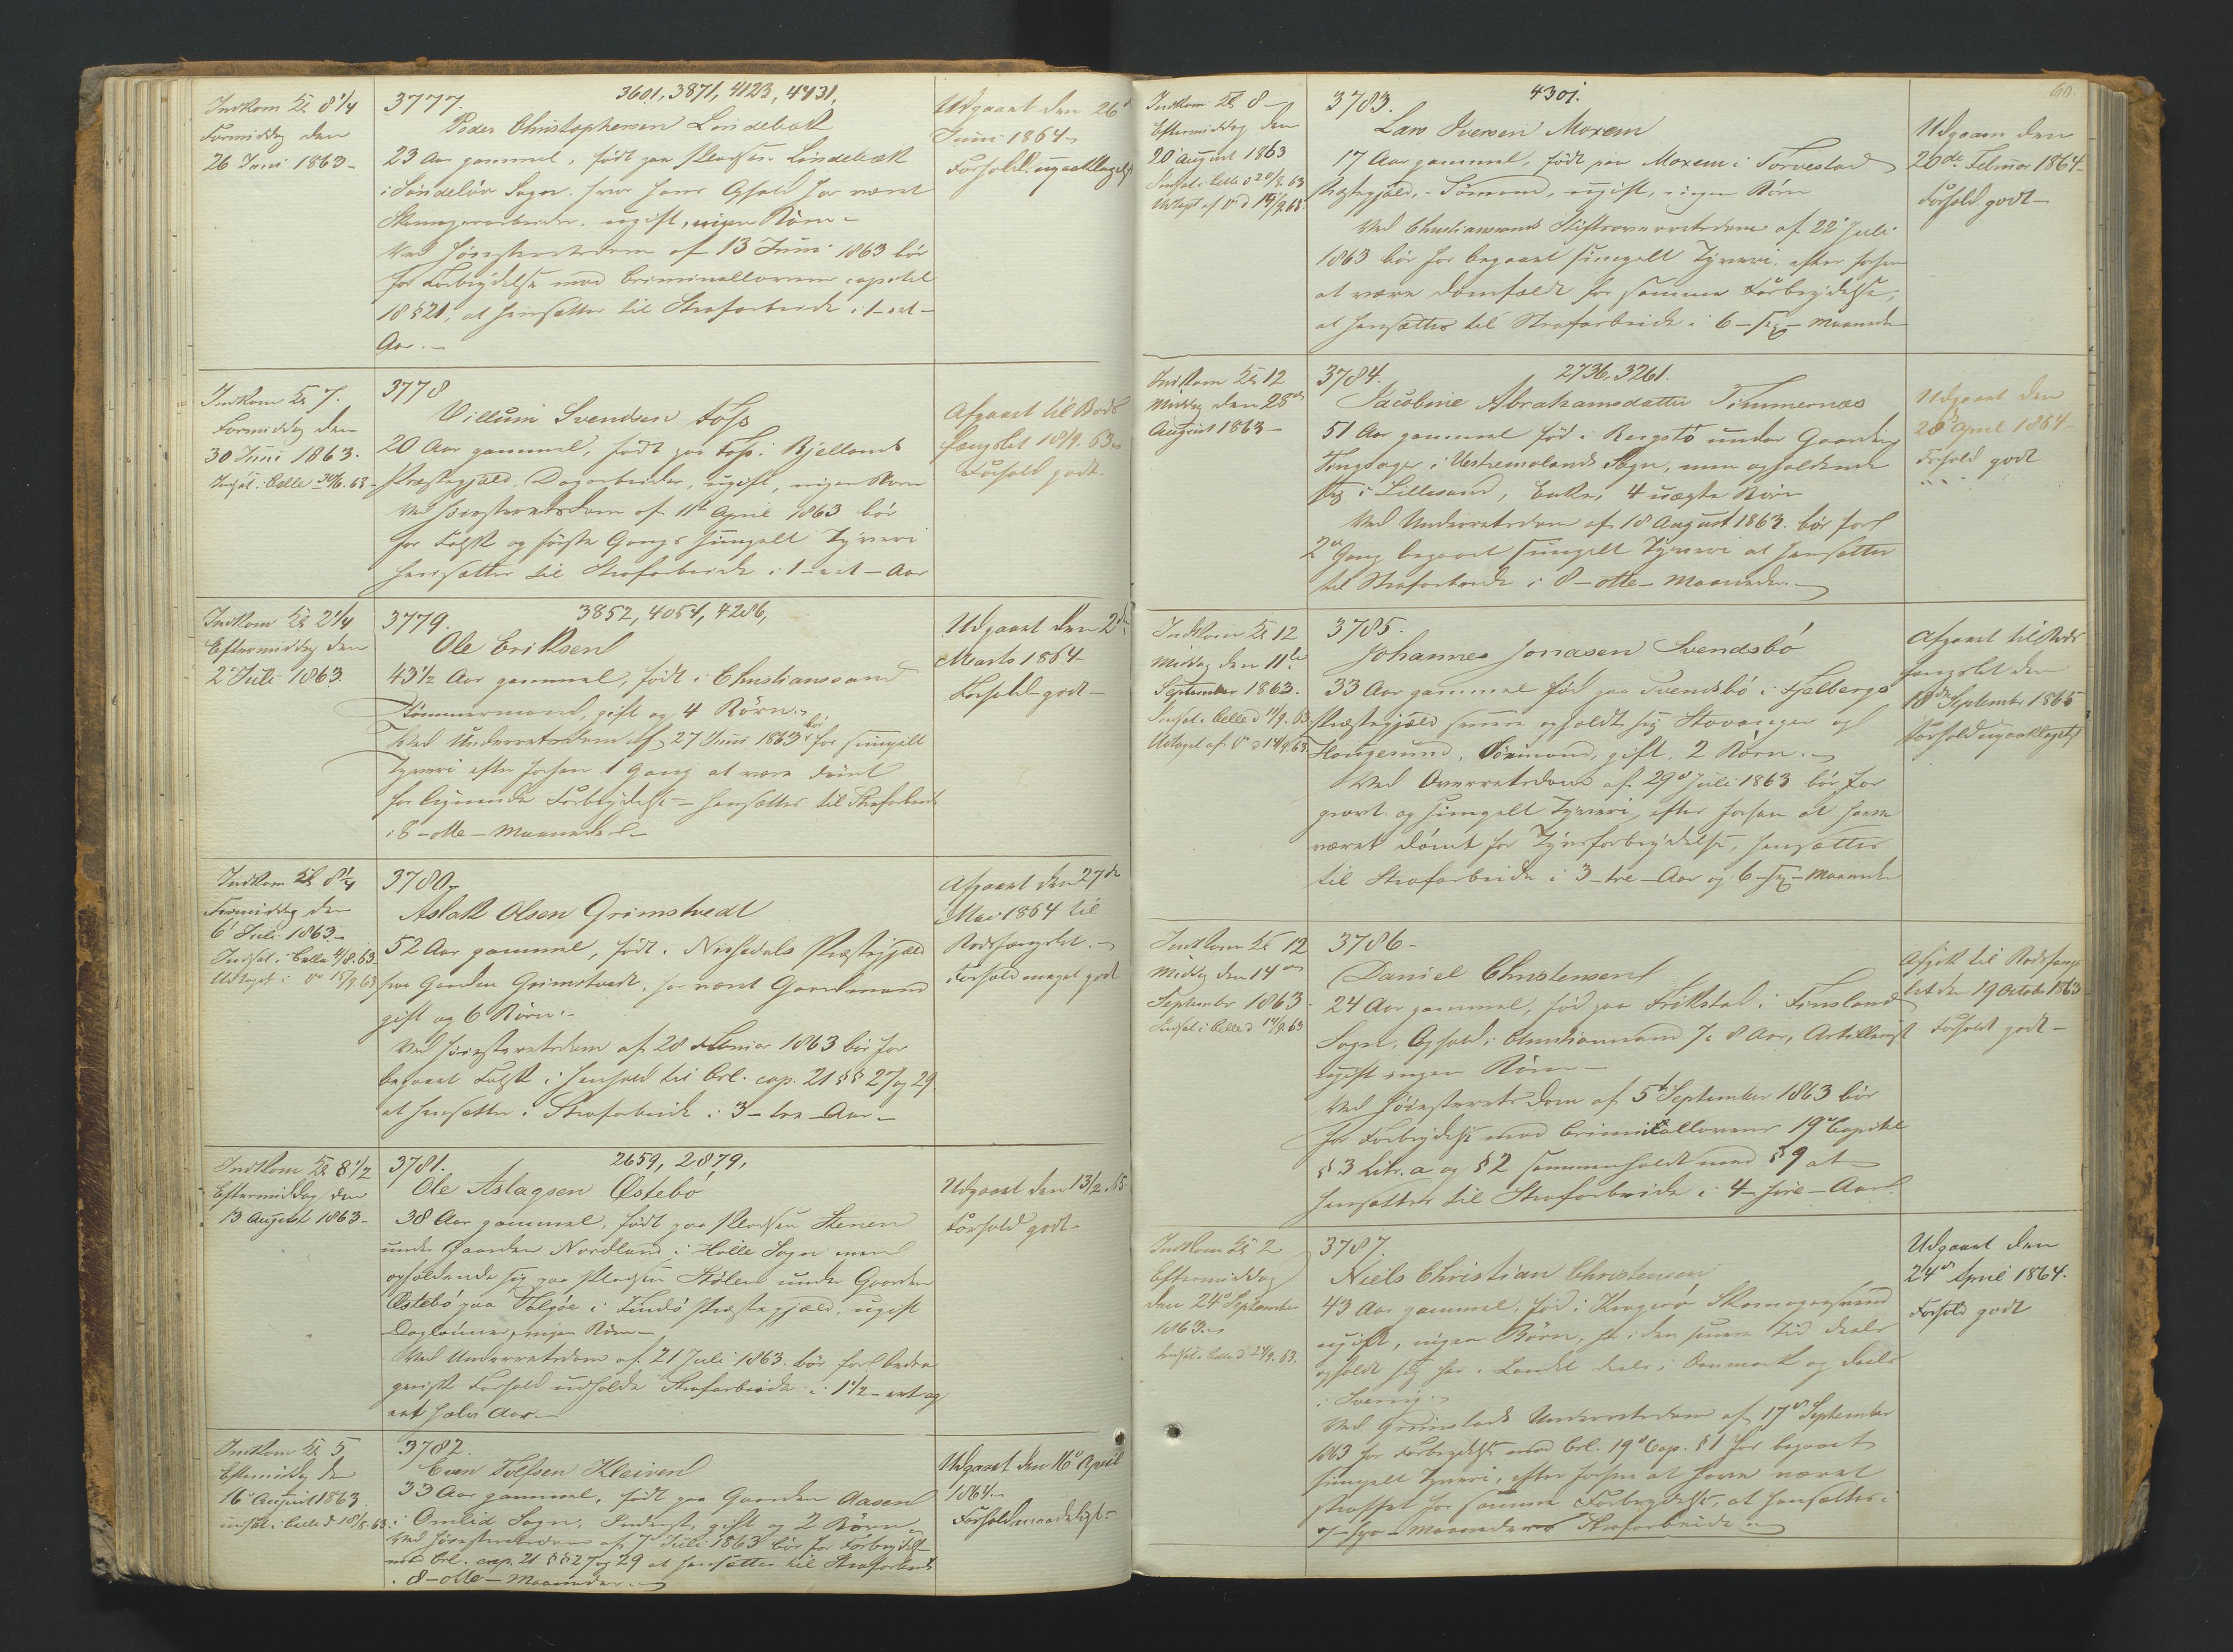 Indkom Kl 8 1/4
Formiddag den
26 Juni 1863 -
3777. 3601, 3871, 4123, 4431,
Peder Christophersen Lindebæk
23 Aar gammel, født paa Pladsen Lindebæk
i Søndeløv Sogn, hvor hans Ophold har været
ugift, ingen Børn -
Ved Høiesteretsdom af 13 Juni 1863 bør
for Forbrydelse mod Criminallovens capitel
18 § 21, at hensættes til Strafarbeide i 1 - et -
Aar. -
Udgaaet den 26
Juni 1864 -
Forhold upaaklageligt
Indkom Kl 7.
Formiddag den
30 Juni 1863.
Indsat i Celle 30/6. 63 -
3778
Villum Svendsen Foss
20 Aar gammel, født paa Foss i Bjellands
Præstegjæld, Dagarbeider, ugift, ingen Børn
Ved Høiesteretsdom af 11te April 1863 bør
for Falsk og første Gangs simpelt Tyveri
hensættes til Strafarbeide i 1 - et - Aar
Afgaaet til Bods
fængslet 18/9. 63 -
Forhold godt.
Indkom Kl 2 1/4
Eftermiddag den
2 Juli 1863.
3779. 3852, 4054, 4286,
Ole Eriksen
43 1/2 Aar gammel, født i Christianssand
Tømmermand, gift og 4 Børn. -
Ved Underretsdom af 27 Juni 1863 bør for simpelt
Tyveri efter forhen 1 Gang at være dømt
for lignende Forbrydelse - hensættes til Strafarbeide
i 8 - otte - Maaneder -
Udgaaet den 2den
Marts 1864 -
Forhold godt -
Indkom Kl 8 1/4
Formiddag den
6 Juli 1863. -
Indsat i Celle 4/8. 63
Udtaget i do 15/9 63
3780 -
Aslak Olsen Grimstvedt
52 Aar gammel, født i Nissedals Præstegjæld
paa Gaarden Grimstvedt, har været Gaardmand
gift og 6 Børn. -
Ved Høiesteretsdom af 28 Februar 1863 bør for
begaaet Falsk i Henhold til Crl. cap. 21 §§ 27 og 29
at hensættes i Strafarbeide i 3 - tre - Aar -
Afgaaet den 27de
Mai 1864 til
Bodsfængslet. -
Forhold meget godt
Indkom Kl 8 1/2
Eftermiddag den
13 August 1863 -
3781. 2659, 2879,
Ole Aslagsen Østebö
38 Aar gammel, født paa Pladsen Stenen
under Gaarden Nordland i Holle Sogn men
opholdende sig paa Pladsen Stølen under Gaarden
Østebö paa i Findö Præstegjæld, ugift
Dagløinner, ingen Børn -
Ved Underretsdom af 21 Juli 1863 bør for bedra
gerisk Forhold udholde Strafarbeide i 1 1/2 - et og
et halv Aar. -
Udgaaet den 13/2. 65.
Forhold godt -
Indkom Kl 5
Eftermiddag den
16 August 1863.
indsat i Celle d 18/8. 63.
3782.
Even Tolfsen Kleiven
33 Aar gammel, født paa Gaarden Aasen
i Omlid Sogn, Inderst, gift og 2 Børn
Ved Høiesteretsdom af 7 Juli 1863 bør for Forbrydelse
mod Crl. cap. 21 §§ 27 og 29 at hensættes til Strafarbeide
i 8 - otte - Maaneder. -
Udgaaet den 16 April
1864. -
Forhold maadeligt -
60.
Indkom Kl 8 -
Eftermiddag den
20 August 1863
Indsat i Celle d 20/8. 63
Udtaget af do d 14/9. 63.
3783. 4301.
Lars Iversen Moxem
17 Aar gammel, født paa Moxem i Torvestad
Præstegjæld, Sømand, ugift, ingen Børn
Ved Christianssands Stiftsoverretsdom af 22 Juli
1863 bør for begaaet simpelt Tyveri, efter forhen
at være domfældt for samme Forbrydelse,
at hensættes til Strafarbeide i 6 - sex - Maaneder
Udgaaen den
20de Februar 1864 -
Forhold godt -
Indkom Kl 12
Middag den 28de
August 1863 -
3784. 2736, 3261.
Jacobine Abrahamsdatter Timmernæs
51 Aar gammel, født i Ringstö under Gaarden
i Vestremolands Sogn, men opholdende
sig i Lillesand, Enke, 4 uægte Børn
Ved Underretsdom af 18 August 1863 bør for
2de Gang begaaet simpelt Tyveri at hensættes
til Strafarbeide i 8 - otte - Maaneder. -
Udgaaet den
28 April 1864 -
Forhold godt
Indkom Kl 12
Middag den 11te
September 1863.
Indsat i Celle d 11/9. 63.
Udtaget af do d 14/9. 63
3785.
Johannes Jonasen Svendsbö
33 Aar gammel, født paa Svendsbö i Fjelbergs
Præstegjæld, senere opholdt sig Stavanger og
Haugesund, Sømand, gift, 2 Børn. -
Ved Overretsdom af 29 Juli 1863 bør for
grovt og simpelt Tyveri, efter forhen at have
været dømt for Tyvsforbrydelse, hensættes
til Strafarbeide i 3 - tre - Aar og 6 - sex - Maaneder
Afgaaet til Bods
fængslet den
18de September 1865
Forhold upaaklageligt
Indkom Kl 12
Middag den 14de
September 1863.
Indsat i Celle d 14/9. 63
3786 -
Daniel Christensen
24 Aar gammel, født paa Frikstad i Finsland
Sogn. Ophold i Christianssand 7 a 8 Aar, Artillerist
ugift ingen Børn -
Ved Høiesterets dom af 5 September 1863 bør
for Forbrydelse mod Criminallovens 19 Capitel
§ 3 Litr. a og § 2 sammenholdt med § 9 at
hensættes til Strafarbeide i 4 - fire - Aar
Afgik til Bodsfængs
let den 19 October 1863
Forhold godt -
Indkom Kl 2
Eftermiddag
den 24 September
1863. -
Indsat i Celle d 24/9. 63.
3787.
Niels Christian Christensen
43 Aar gammel, født i Kragerö Skomagersvend
ugift, ingen Børn, har i den senere Tid deels
opholdt sig her i Landet deels i Danmark og deels
i Sverrig. -
Ved Grimstads Underretsdom af 17 September
1863 for Forbrydelse mod Crl. 19 Cap. § 1 for begaaet
simpelt Tyveri, efter forhen at have været
straffet for samme Forbrydelse, at hensættes i
7 - syv - Maaneders Strafarbeide -
Udgaaet den
24de April 1864.
Forhold godt